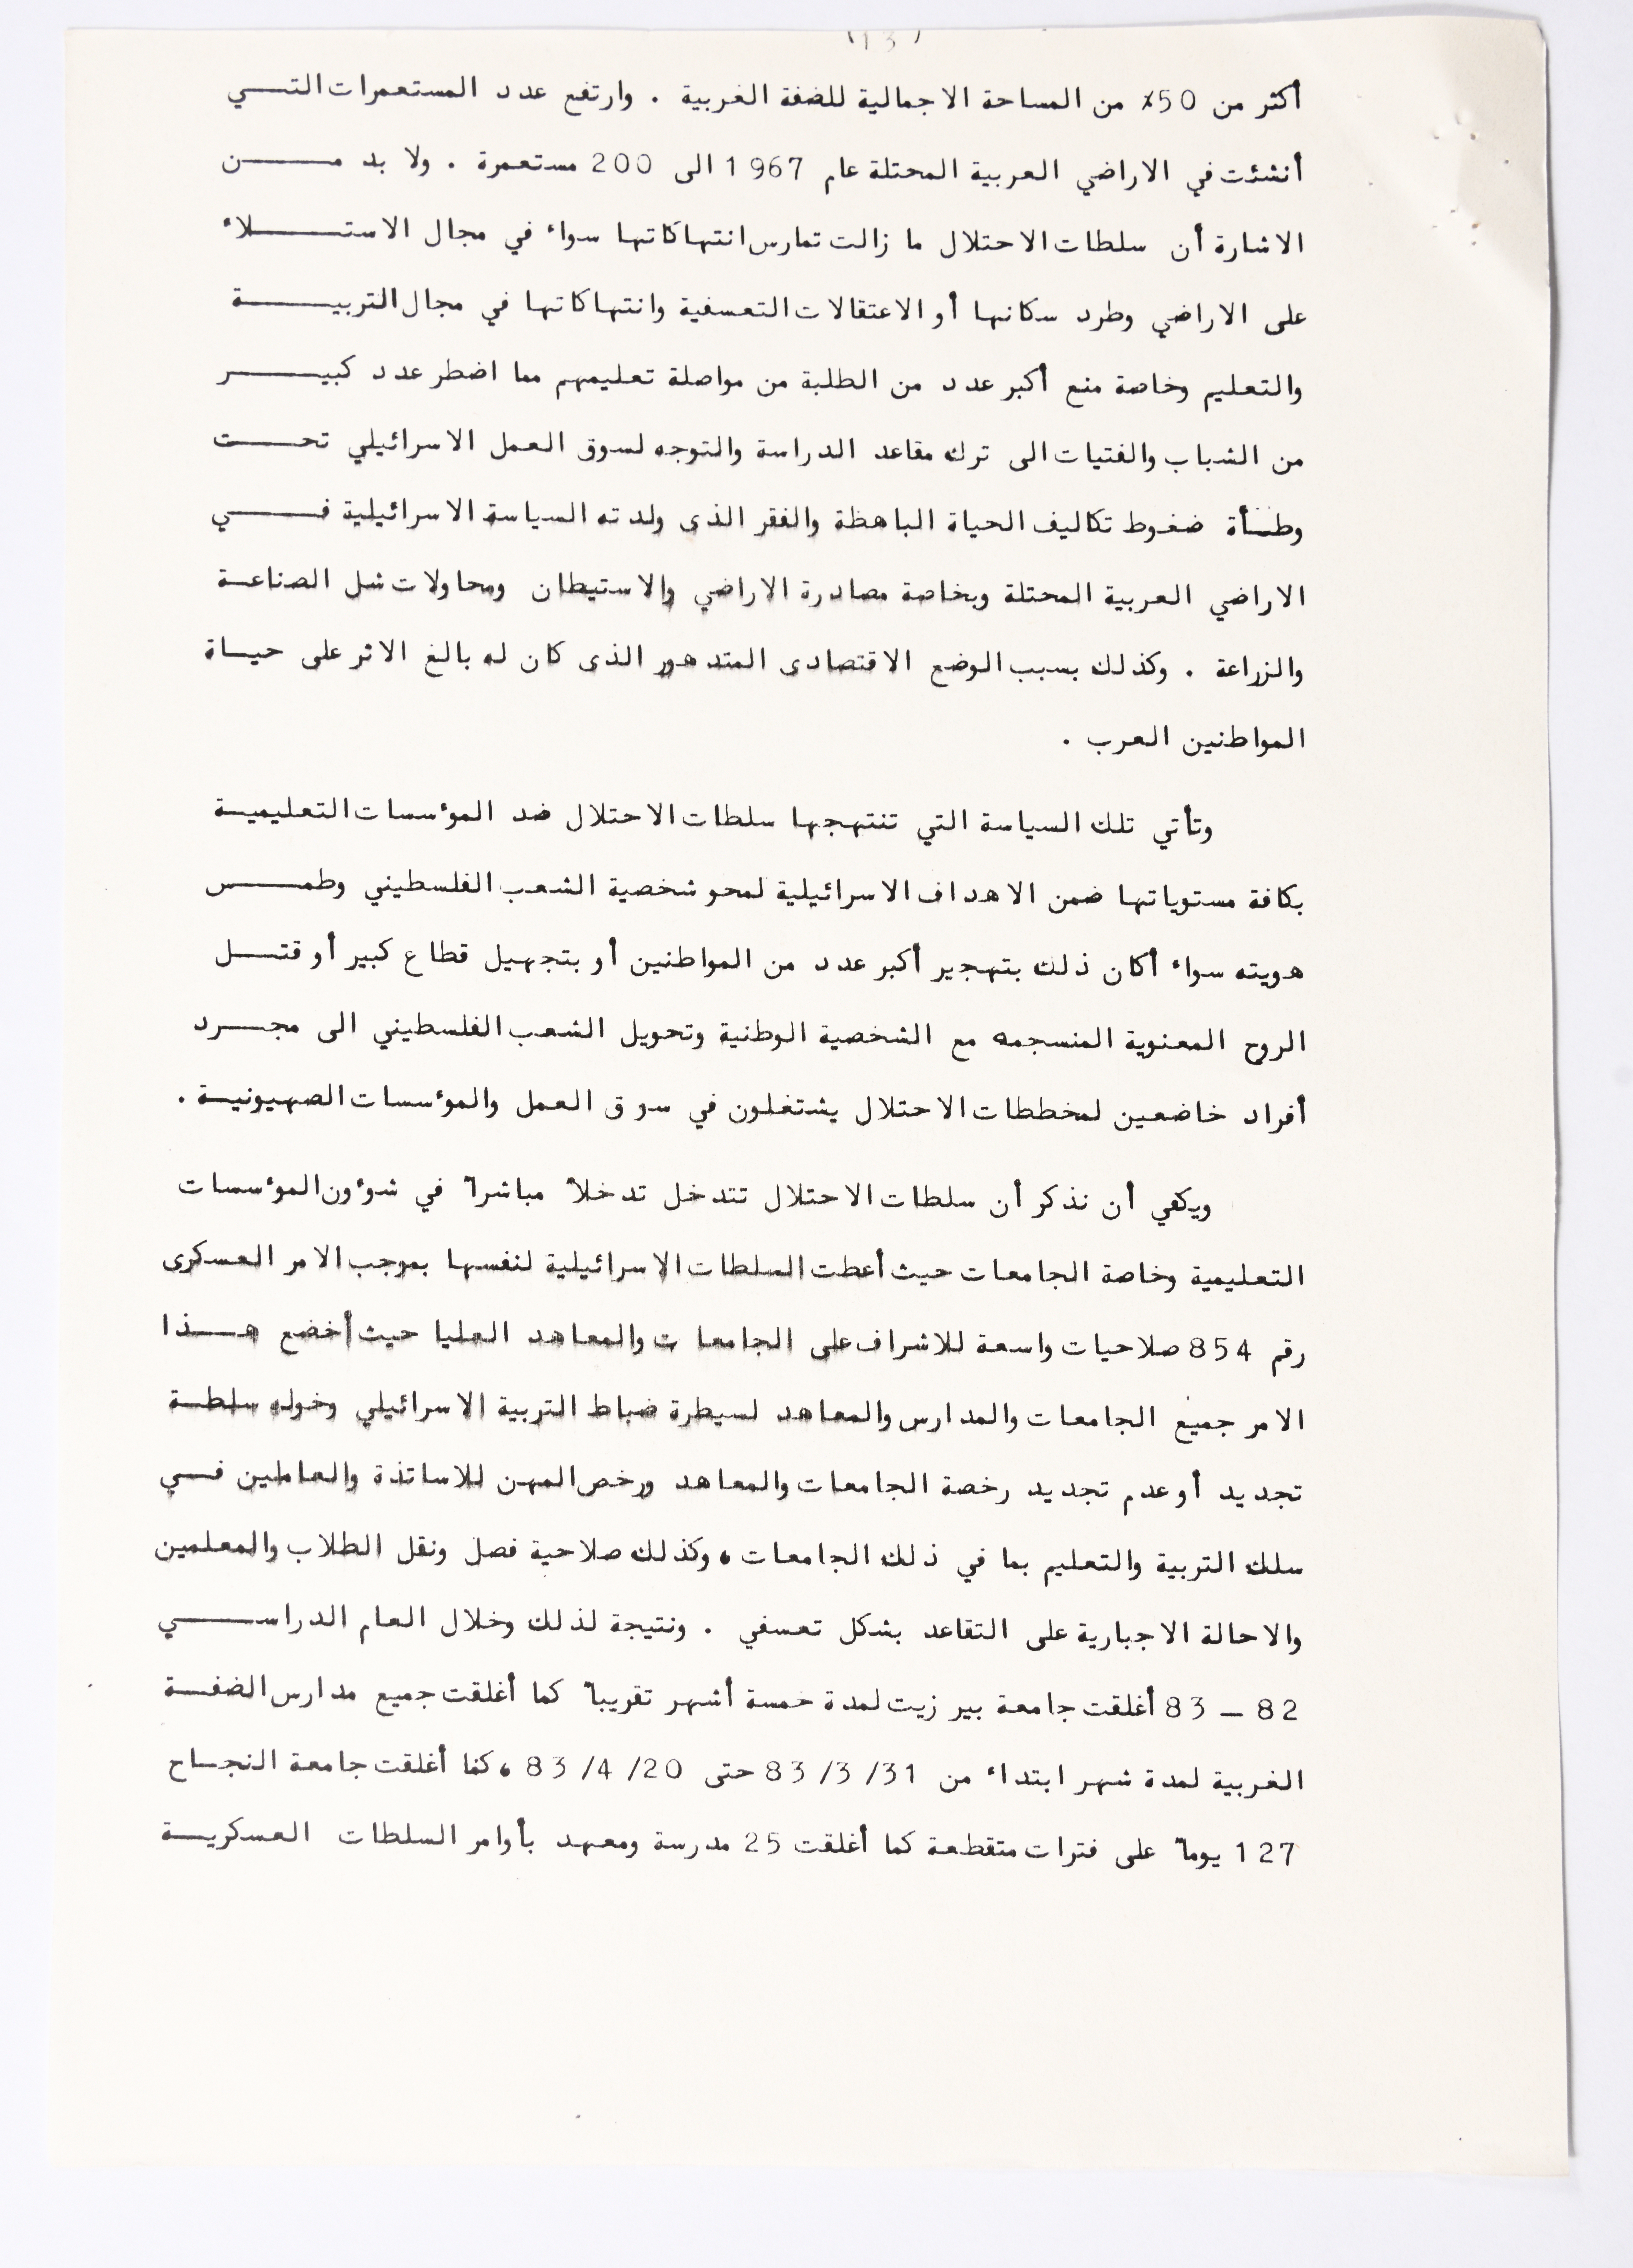 (13)
أكثر من 50٪ من المساحة الاجمالية للضفة الغربية . وارتفع عدد المستعمرات التي
أنشئت في الاراضي العربية المحتلة عام 1967 الى 200 مستعمرة . ولا بد من
الاشارة أن سلطات الاحتلال ما زالت تمارس انتهاكاتها سواء في مجال الاستلاء
على الاراضي وطرد سكانها أو الاعتقالات التعسفية وانتهاكاتها في مجال التربية
والتعليم وخاصة منع أكبر عدد من الطلبة من مواصلة تعليمهم مما اضطر عدد كبير
من الشباب والفتيات الى ترك مقاعد الدراسة والتوجه لسوق العمل الاسرائيلي تحت
وطأة ضغوط تكاليف الحياة الباهظة والفقر الذى ولدته السياسة الاسرائيلية في
الاراضي العربية المحتلة وبخاصة مصادرة الاراضي والاستيطان ومحاولات شل الصناعة
والزراعة . وكذلك بسبب الوضع الاقتصادى المتدهور الذى كان له بالغ الاثر على حياة
المواطنين العرب .
وتأتي تلك السياسة التي تنتهجها سلطات الاحتلال ضد المؤسسات التعليمية
بكافة مستوياتها ضمن الاهداف الاسرائيلية لمحو شخصية الشعب الفلسطيني وطمس
هويته سواء أكان ذلك بتهجير أكبر عدد من المواطنين أو بتجهيل قطاع كبير أو قتل
الروح المعنوية المنسجمه مع الشخصية الوطنية وتحويل الشعب الفلسطيني الى مجرد
أفراد خاضعين لمخططات الاحتلال يشتغلون في سوق العمل والمؤسسات الصهيونية .
ويكفي أن نذكر أن سلطات الاحتلال تتدخل تدخلاً مباشراً في شؤون المؤسسات
التعليمية وخاصة الجامعات حيث أعطت السلطات الاسرائيلية لنفسها بموجب الامر العسكرى
رقم 854 صلاحيات واسعة للاشراف على الجامعات والمعاهد العليا حيث أخضع هذا
الامر جميع الجامعات والمدارس والمعاهد لسيطرة ضباط التربية الاسرائيلي وخوله سلطة
تجديد أو عدم تجديد رخصة الجامعات والمعاهد ورخص المهن للاساتذة والعاملين في
سلك التربية والتعليم بما في ذلك الجامعات ، وكذلك صلاحية فصل ونقل الطلاب والمعلمين
والاحالة الاجبارية على التقاعد بشكل تعسفي . ونتيجة لذلك وخلال العام الدراسي
82 – 83 أغلقت جامعة بير زيت لمدة خمسة أشهر تقريباً كما أغلقت جميع مدارس الضفة
الغربية لمدة شهر ابتداء من 31/3/83 حتى 20/4/83 ، كما أغلقت جامعة النجاح
127 يوماً على فترات متقطعة كما أغلقت 25 مدرسة ومعهد بأوامر السلطات العسكرية